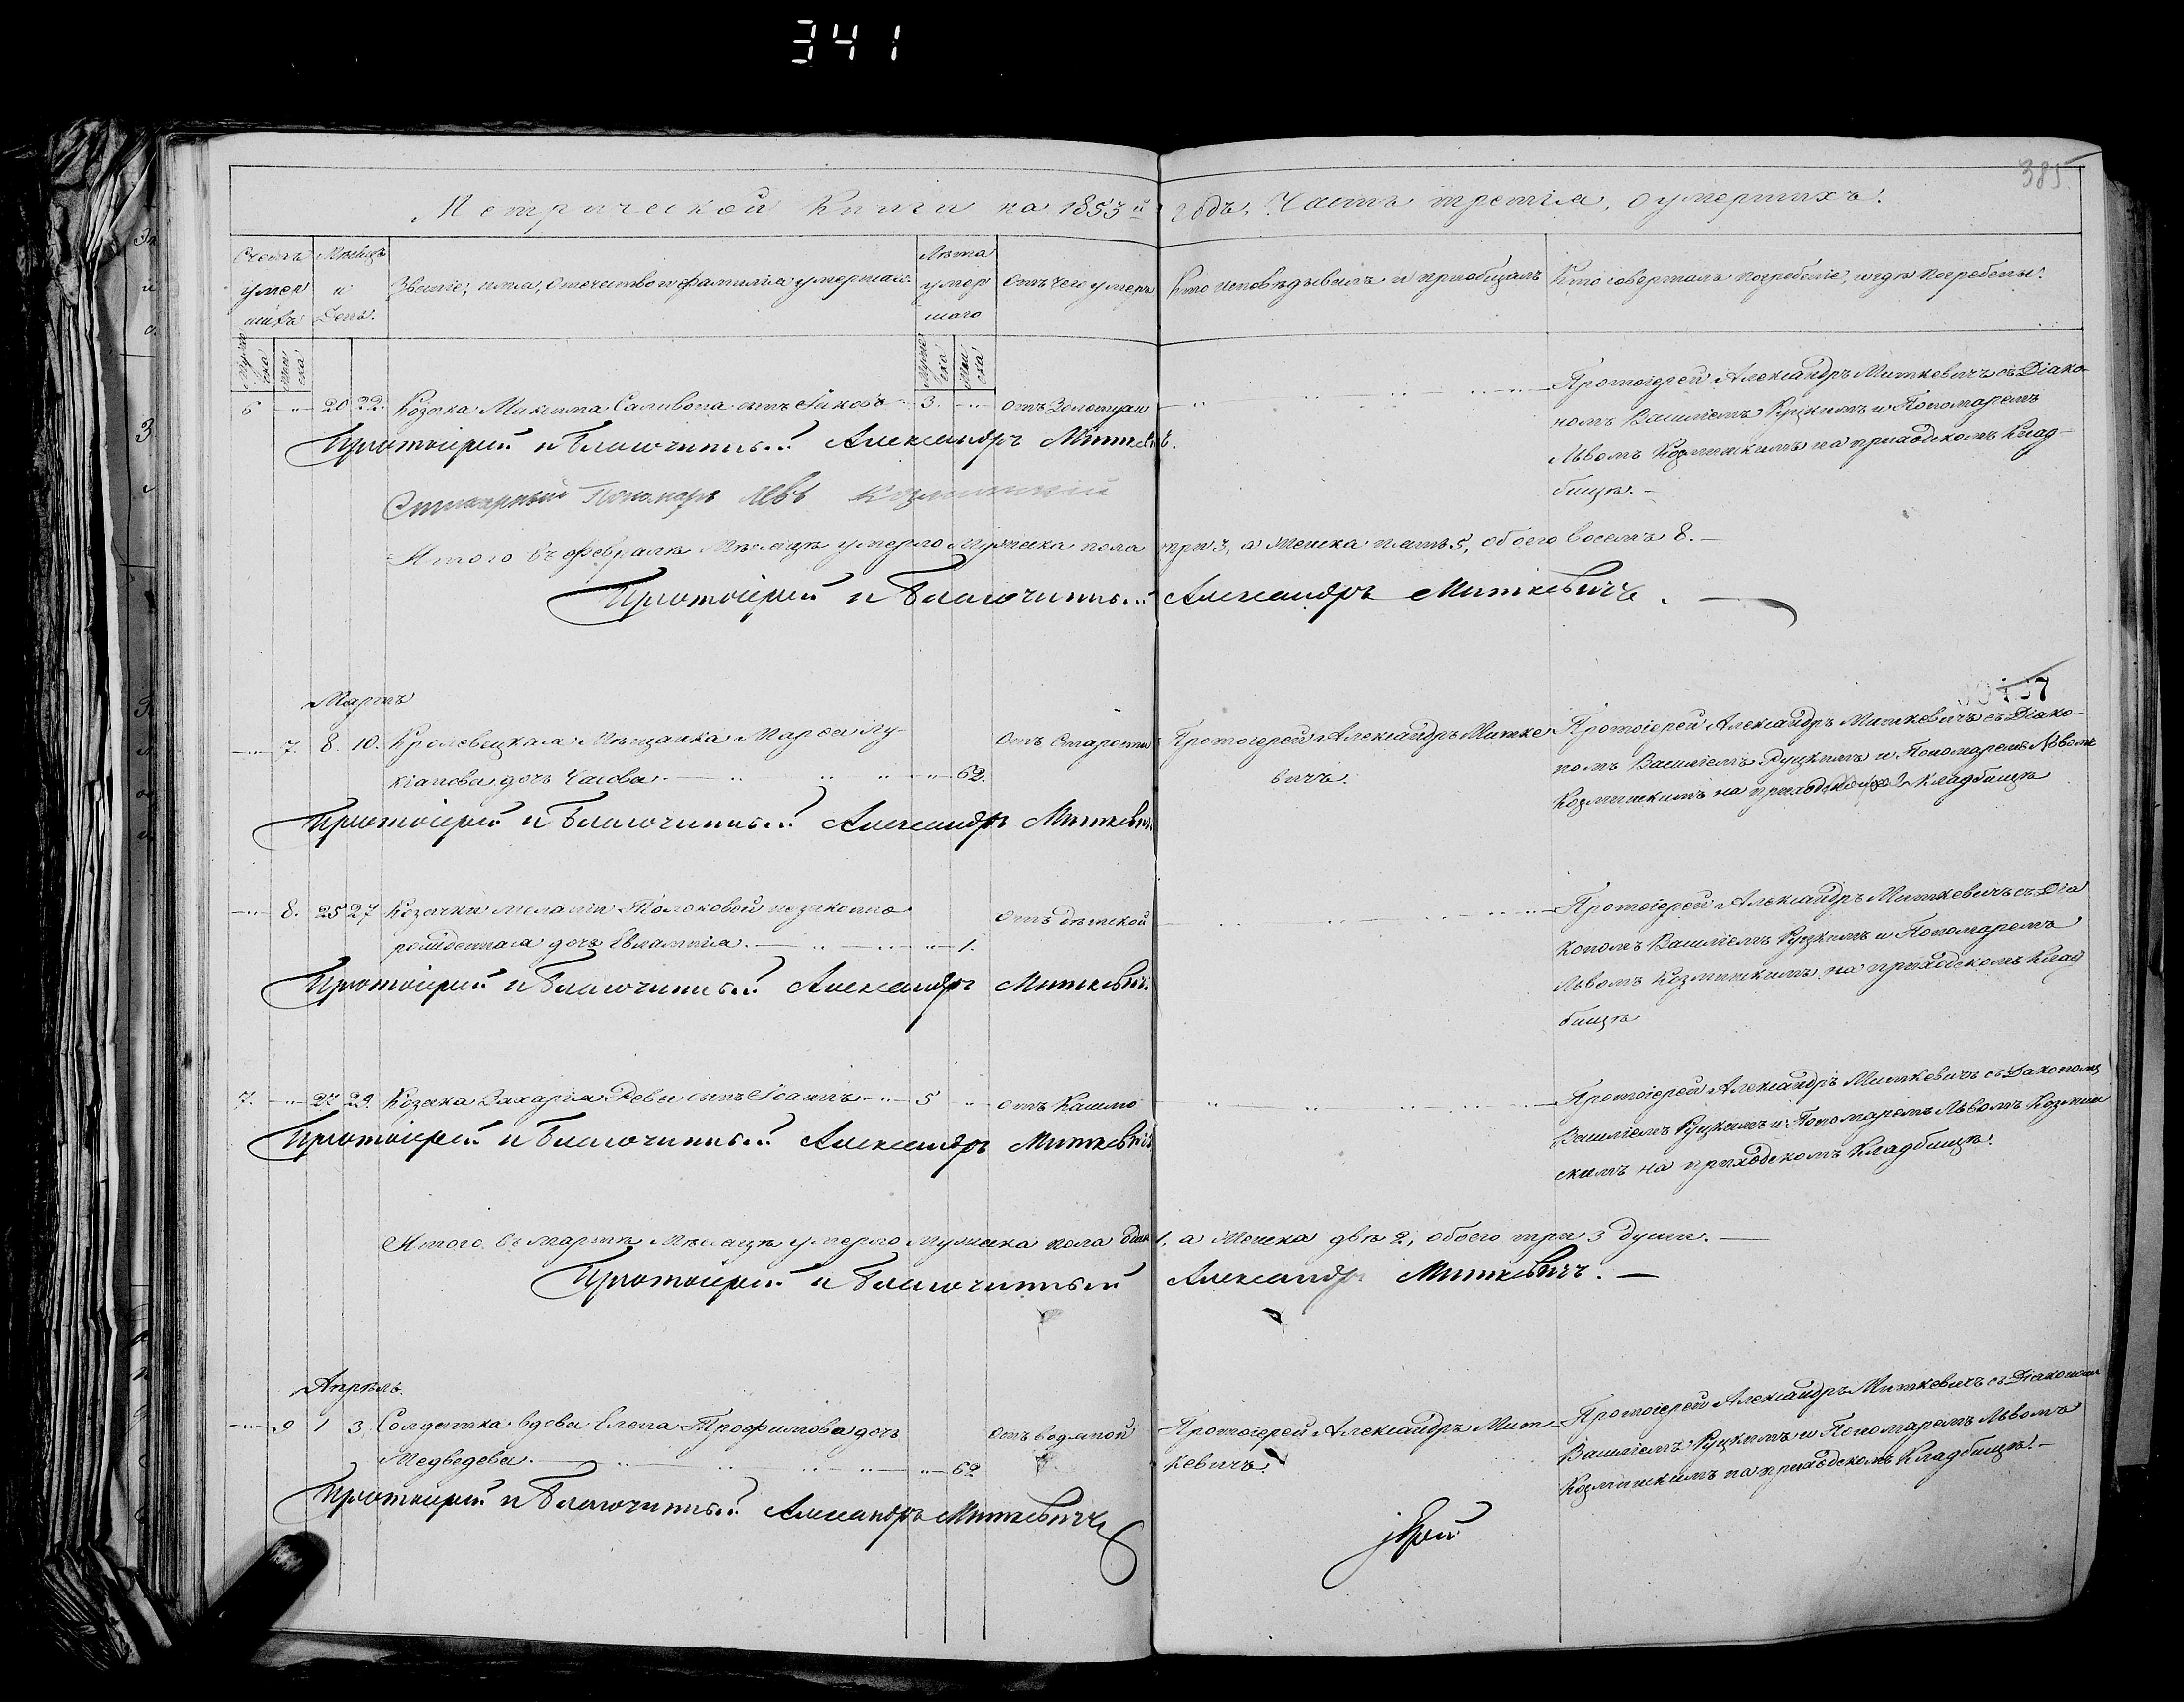 341
385
Метрической Книги на 1853й годъ, Часть третія, о умершихъ.
Счетъ умершихъ
Мѣсяцъ и День.
Званіе, имя, отечество и фамилія умершаго.
Лѣта умершаго
Отъ чего умеръ
Кто исповѣдывалъ и пріобщалъ
Кто совершалъ погребеніе, и гдѣ погребены.
Мужеска
Женска
Мужеска
Женска
6 — 20 22. Козака Максима Саливона сынъ Іаковъ 3. — отъ Золотухи
Протоіерей Александръ Миткевичъ съ Діако-
номъ Василіемъ Руцкимъ и Пономаремъ
Львомъ Козминскимъ на приходскомъ Клад-
бищѣ. –
Протоіерей и Благочинный Александръ Миткевичъ.
Стихарный Пономарь Левъ Козминскій
Итого въ февралѣ Мѣсяцѣ умерло Мужеска пола три 3, а Женска пять 5, обоего восемъ 8. —
Протоіерей и Благочинный Александръ Миткевичъ. —
Мартъ
— 7. 8. 10. Кролевецкая Мѣщанка Марѳа Лу-
кіанова дочь — 62.
Отъ Старости
Протоіерей Александръ Митке-
вичъ.
Протоіерей Александръ Миткевичъ съ Діако-
номъ Василіемъ Руцкимъ и Пономаремъ Львомъ
Козминскимъ на приходскомъ Кладбищѣ
Протоіерей и Благочинный Александръ Миткевичъ
— 8. 25 27 Козачки Меланіи Толоковой незаконно
рожденная дочь Евлампія. — 1.
Отъ дѣтской
Протоіерей Александръ Миткевичъ съ Діа
кономъ Василіемъ Руцкимъ и Пономаремъ
Львомъ Козминскимъ на приходскомъ Клад
бищѣ
Протоіерей и Благочинный Александръ Миткевичъ
7. — 27 29. Козака Захарія Ревы сынъ Іоаннъ — 5 — отъ Кашлю
Протоіерей Александръ Миткевичъ съ Діакономъ
Василіемъ Руцкимъ и Пономаремъ Львомъ Козмин
скимъ на приходскомъ Кладбищѣ.
Протоіерей и Благочинный Александръ Миткевичъ
Итого въ мартѣ Мѣсяцѣ умерло мужеска пола 1, а Женска двѣ 2, обоего три 3 души. —
Протоіерей и Благочинный Александръ Миткевичъ. —
Апрѣль.
— 9 1 3. Солдатка вдова Елена Трофимова дочь
Медведева. — 62
Отъ водяной
Протоіерей Александръ Мит-
кевичъ.
Протоіерей Александръ Миткевичъ съ Діакономъ
Василіемъ Руцкимъ и Пономаремъ Львомъ
Козминскимъ на приходскомъ Кладбищѣ. –
Протоіерей и Благочинный Александръ Миткевичъ